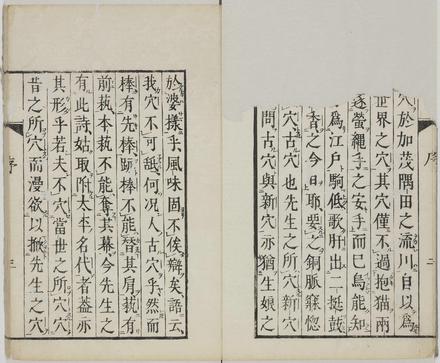 穴於加茂隅田之流川自以爲
世界之穴其穴僅不過抱猫兩
逐螢繩手之安手而已烏能知
爲江戸駒低歌肝出二挺鼓
香之今日耶要之銅脈寐惚
穴古穴也先生之所穴新
問古穴與新穴亦猶生娘之
序
二
於婆樣乎風味固不俟辯矣語云
我穴不可舐何況人古穴乎然而
棒有先棒跡棒不能替其肩萟有
前萟本萟不能奪其幕今先生之
有此詩姑取附太平名代者蓋亦
其形乎若夫不穴當世之所穴穴
昔之所穴而漫欲以掀先生之穴
序
三